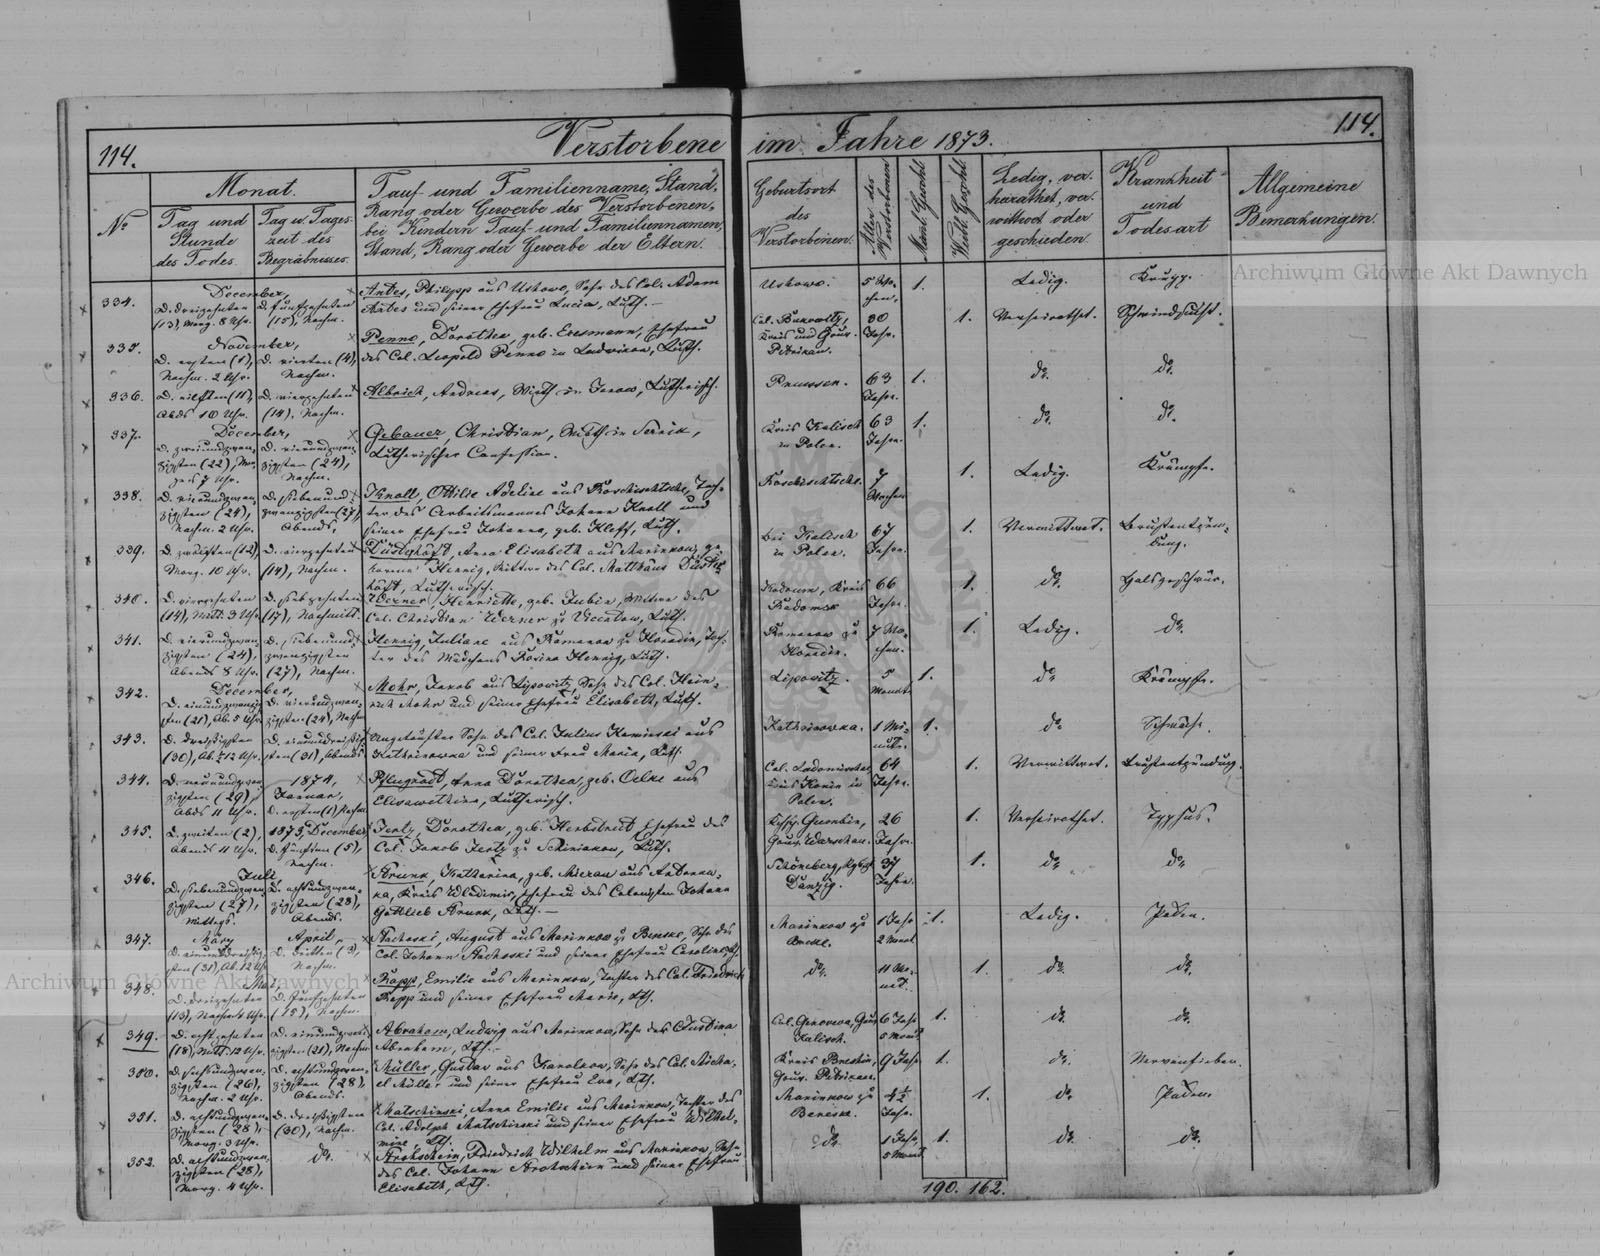 114.
Verstorbene im Jahre 1873.
114.
№
Monat.
Tag und Stunde des Todes.
Tag u. Tageszeit des Begräbnisses.
Tauf- und Familienname, Stand,
Rang oder Gewerbe des Verstorbenen,
bei Kindern Tauf- und Familiennamen,
Stand, Rang oder Gewerbe der Eltern.
Geburtsort des Verstorbenen.
Alter des Verstorbenen
Mänl. Geschl.
Weibl. Geschl.
Ledig, verheirathet, verwittwet oder geschieden.
Krankheit und Todesart
Allgemeine Bemerkungen.
334.
December,
D. dreizehnten (13), Morg. 8 Uhr.
D. fünfzehnten (15), Nachm.
Antes, Philipp aus Uskowo, Sohn des Col. Adam
Antes und seiner Ehefrau Lucia, Luth.
Uskowo.
5 Wochen.
1.
Ledig.
Krupp.
335.
November,
D. ersten (1), Nachm. 2 Uhr.
D. vierten (4), Nachm.
Penno, Dorothea, geb. Eresmann, Ehefrau
des Col. Leopold Penno in Ludwikow, Luth.
Kreis und Gouv. Petrikau.
30 Jahr.
1.
Verheirathet.
Schwindsucht.
336.
D. eilften (11), Abds 10 Uhr.
D. vierzehnten (14), Nachm.
Albrich, Andreas, Wirth in Janow, Lutherisch.
Preussen.
63 Jahr.
1.
do.
do.
337.
December,
D. zweiundzwanzigsten (22), Morgens 7 Uhr.
D. vierundzwanzigsten (24), Nachm.
Gebauer, Christian, Wirth in
Lutherischer Confession.
Kreis Kalisch in Polen.
63 Jahr.
1.
do.
do.
338.
D. vierundzwanzigsten (24), Nachm. 2 Uhr.
D. siebenundzwanzigsten (27), Abends.
Knoll, Ottilie Adeline aus Roschischtsche, Tochter
des Arbeitsmannes Johann Knoll und
seiner Ehefrau Johanna, geb. Kloff, Luth.
Roschischtsche.
7 Wochen
1.
Ledig.
Krämpfe.
339.
D. zwölften (12), Morg. 10 Uhr.
D. vierzehnten (14), Nachm.
Düsterhöft, Anna Elisabeth aus Marinkow, geborene
Hennig, Wittwe des Col. Matthäus Düsterhöft, Lutherisch.
bei Kalisch in Polen.
67 Jahr.
1.
Verwittwet.
Brustentzündung.
340.
D. vierzehnten (14), Mitt. 3 Uhr.
D. siebzehnten (17), Nachmitt.
Werner, Henriette, geb. Zubin, Wittwe des
Col. Christian Werner zu Vincentow, Luth.
Kreis Radomsk
66 Jahr.
1.
do.
Halsgeschwür.
341.
D. vierundzwanzigsten (24), Abends 8 Uhr.
D. siebenundzwanzigsten (27), Nachm.
Hennig, Juliane aus Romanow zu Horodin, Tochter
des Mädchens Rosina Hennig, Luth.
Romanow zu Horodin.
7 Wochen.
1.
Ledig.
do.
342.
December,
D. einundzwanzigsten (21), Ab. 5 Uhr.
D. vierundzwanzigsten (24), Nachm
Mohr, Jakob aus Lipowitz, Sohn des Col. Heinrich
Mohr und seiner Ehefrau Elisabeth, Luth.
Lipowitz.
5 Monate
1.
do
Krämpfe.
343.
D. dreißigsten (30), Ab. 12 Uhr.
D. einunddreißigsten (31), Abends
Ungetaufter Sohn des Col. Julius Kaminski aus
Katharinowka und seiner Frau Maria, Luth.
Katharinowka.
1 Minute.
1.
do.
Schwäche.
344.
D. neunundzwanzigsten (29), Abds 11 Uhr.
1874, Januar,
D. ersten (1), Nachm.
Pflugradt, Anna Dorothea, geb. Oelke aus
Elisawethin, Lutherisch.
Kreis Konin in Polen.
64 Jahr.
1.
Verwittwet.
Brustentzündung.
345.
D. zweiten (2), Abends 11 Uhr.
1873, December
D. fünften (5), Nachm.
Jertz, Dorothea, geb. Herbstreit, Ehefrau des
Col. Jakob Jertz zu Schiniakow, Luth.
Gombin, Gouv. Warschau.
26 Jahr.
1.
Verheirathet.
Typhus.
346.
Juli.
D. siebenundzwanzigsten (27), Mittags.
D. achtundzwanzigsten (28), Abends.
Krunk, Katharina, geb. Mierau aus Antonowka,
Kreis Wladimir, Ehefrau des Colonisten Johann
Gottlieb Krunk, Lth.
Schöneberg, Danzig.
37 Jahre.
1.
do
do
347.
März
D. einunddreißigsten (31), Ab. 12 Uhr
April,
D. dritten (3), Nachm.
August aus Marinkow zu Bereske, Sohn des
Col. Johann und seiner Ehefrau Caroline, Lth.
Marinkow zu
1 Jahr 2 Monat
1.
Ledig.
Pocken.
348.
Mai,
D. dreizehnten (13), Nachm. 4 Uhr.
D. fünfzehnten (15), Nachm.
Rapp, Emilie aus Marinkow, Tochter des Col. Friedrich
Rapp und seiner Ehefrau Marie, Lth.
do.
11 Monat.
1.
do.
do.
349.
D. achtzehnten (18), Mitt. 12 Uhr.
D. einundzwanzigsten (21), Nachm
Abraham, Ludwig aus Marinkow, Sohn des Justina
Abraham, Lth.
Col. Genowewa, Gouv. Kalisch.
6 Jahr 5 Monat
1.
do.
do.
350.
D. sechsundzwanzigsten (26), Nachm. 2 Uhr.
D. achtundzwanzigsten (28), Abends.
Müller, Gustav aus Karolkow, Sohn des Col. Michael
Müller und seiner Ehefrau Eva, Lth.
Kreis Gouv. Petrikau.
9 Jahr
1.
do.
Nervenfieber.
351.
D. achtundzwanzigsten (28), Morg. 3 Uhr.
D. dreißigsten (30), Nachm.
Matschinski, Anna Emilie aus Marinkow, Tochter des
Col. Adolph Matschinski und seiner Ehefrau Wilhelmine, Lth.
Marinkow zu Bereske.
4½ Jahr.
1.
do
Pocken.
352.
D. achtundzwanzigsten (28), Morg. 4 Uhr.
do.
Friedrich Wilhelm aus Marinkow, Sohn
des Col. Johann und seiner Ehefrau
Elisabeth, Lth.
do.
1 Jahr 5 Monat
1.
do.
do.
190. 162.
Archiwum Główne Akt Dawnych
Archiwum Główne Akt Dawnych